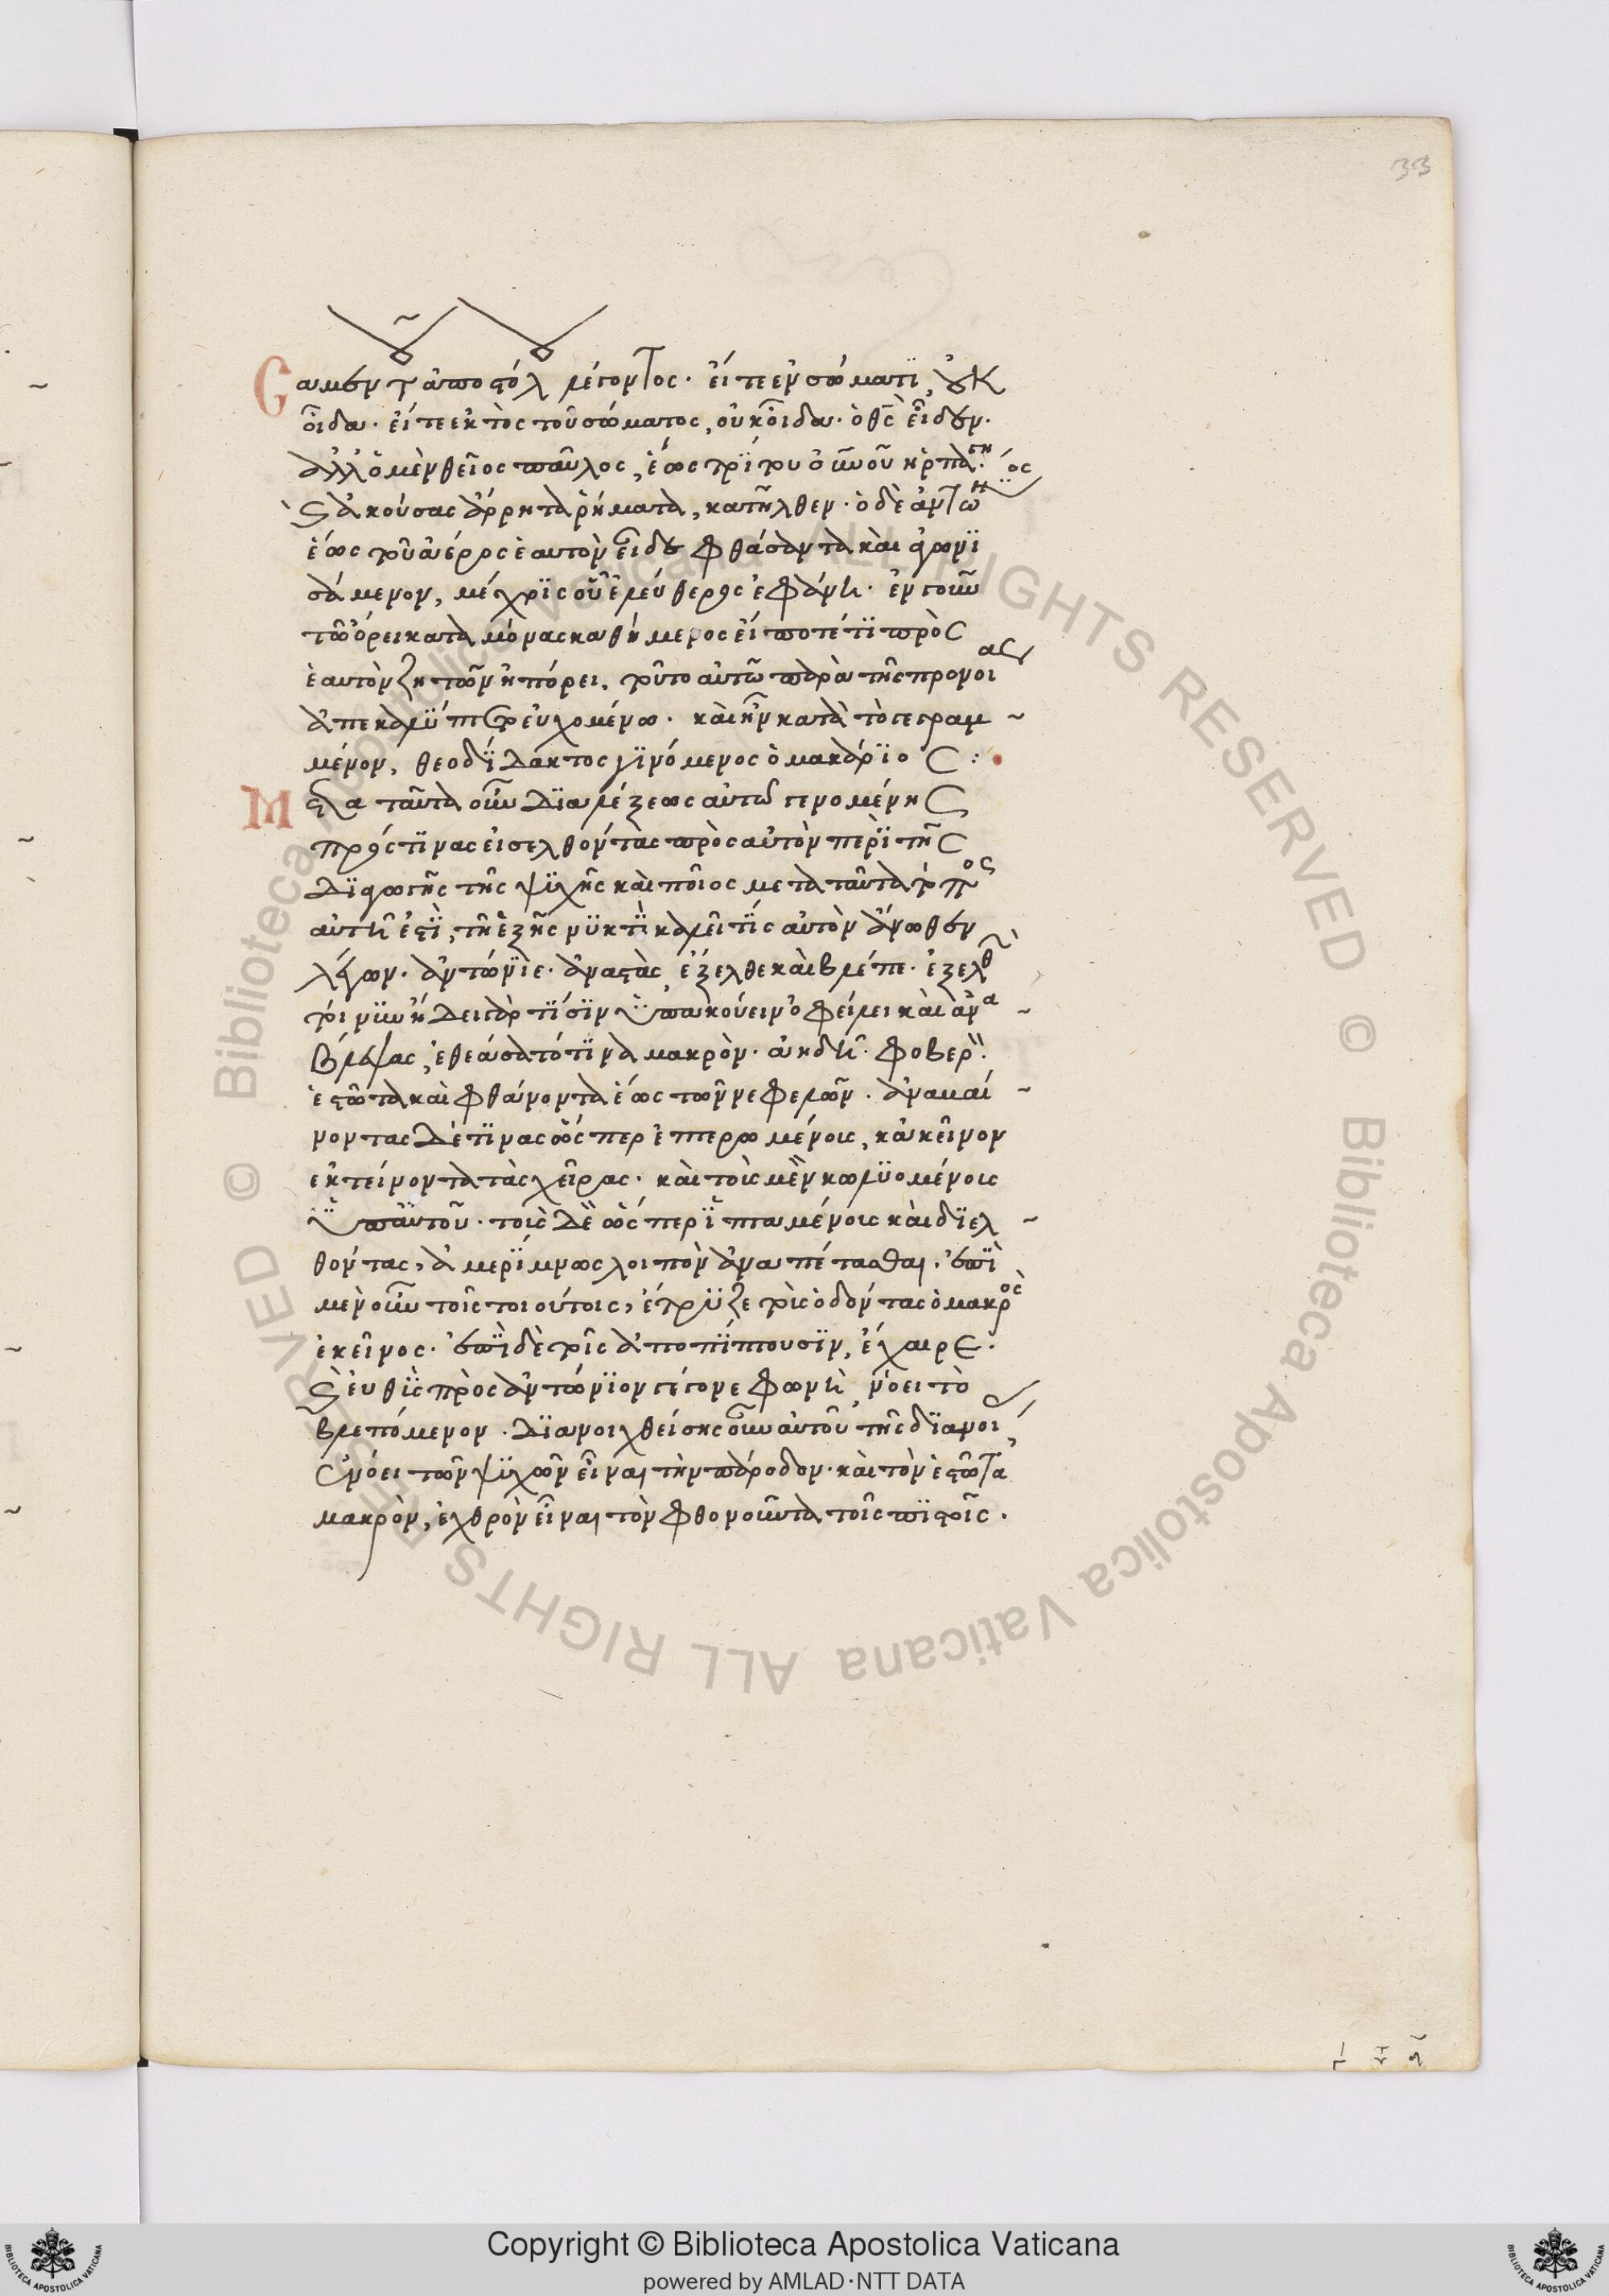 33
Ἐὰν μὲν τοῦ ἀποστόλου λέγοντος· εἴτε ἐν σώματι, οὐκ
οἶδα· εἴτε ἐκτὸς τοῦ σώματος, οὐκ οἶδα· ὁ θς οἶδεν·
ἀλλ' ὁ μὲν θεῖος παῦλος, ἕως τρίτου οὐνοῦ ἡρπάγη·
καὶ ἀκούσας ἄρρητα ῥήματα, κατῆλθεν· ὁ δὲ ἀντώνιος
ἕως τοῦ ἀέρος ἑαυτὸν εἶδε φθάσαντα καὶ ἀγωνι
σάμενον, μέχρις οὗ ἐλεύθερος ἐφάνη· ἐν γοῦν
τῶ ὄρει κατα μόνας καθήμενος εἴποτέ τι πρὸς
ἑαυτὸν ζητῶν ἠπόρει, τοῦτο αὐτῶ παρὰ τῆς προνοίας
ἀπεκαλύπτετο εὐχομένω· καὶ ἦν κατὰ τὸ γεγραμ
μένον, θεοδίδακτος γινόμενος ὁ μακάριος :·
Μετὰ ταῦτα οὖν διαλέξεως αὐτῶ γενομένης
πρός τινας εἰσελθόντας πρὸς αὐτὸν περὶ τῆς
διαγωγῆς τῆς ψυχῆς καὶ ποῖος μετα ταῦτα τόπος
αὐτῆ ἐστὶ, τῆ ἑξῆς νυκτὶ καλεῖ τίς αὐτὸν ἄνωθεν
λέγων· ἀντώνιε· ἀναστὰς ἔξελθε καὶ βλέπε· ἐξελθὼν
τοίνυν ἤδει γὰρ τίσιν ὑπακούειν ὀφείλει καὶ ἀνα
βλέψας, ἐθεάσατό τινα μακρὸν· ἀηδῆ· φοβερὸν·
ἑστῶτα καὶ φθάνοντα ἕως τῶν νεφελῶν· ἀναβαί
νοντας δέ τινας ὥσπερ ἐπτερωμένους, κἀκεῖνον
ἐκτείνοντα τὰς χεῖρας· καὶ τοὺς μὲν κωλυομένους
ὑπ' αὐτοῦ· τοὺς δὲ ὥσπερ ἱπταμένους καὶ διελ
θόντας, ἀμερίμνως λοιπὸν ἀναπέτασθαι· ἐπὶ
μὲν οὖν τοῖς τοιούτοις, ἔτρυζε τοὺς ὀδόντας ὁ μακρὸς
ἐκεῖνος· ἐπὶ δὲ τοῖς ἀποπίπτουσιν, ἔχαιρε·
καὶ εὐθὺς πρὸς ἀντώνιον γέγονε φωνὴ νόει τὸ
βλεπόμενον· διανοιχθείσης οὖν αὐτοῦ τῆς διανοίας
ἐνόει τῶν ψυχῶν εἶναι τὴν πάροδον· καὶ τὸν ἑστῶτα
μακρὸν, ἐχθρὸν εἶναι τὸν φθονοῦντα τοῖς πιστοῖς·
© Biblioteca Apostolica Vaticana ALL RIGHTS RESERVED © Biblioteca Apostolica Vaticana ALL RIGHTS RESERVED
Copyright © Biblioteca Apostolica Vaticana
powered by AMLAD·NTT DATA
BIBLIOTECA APOSTOLICA VATICANA
BIBLIOTECA APOSTOLICA VATICANA